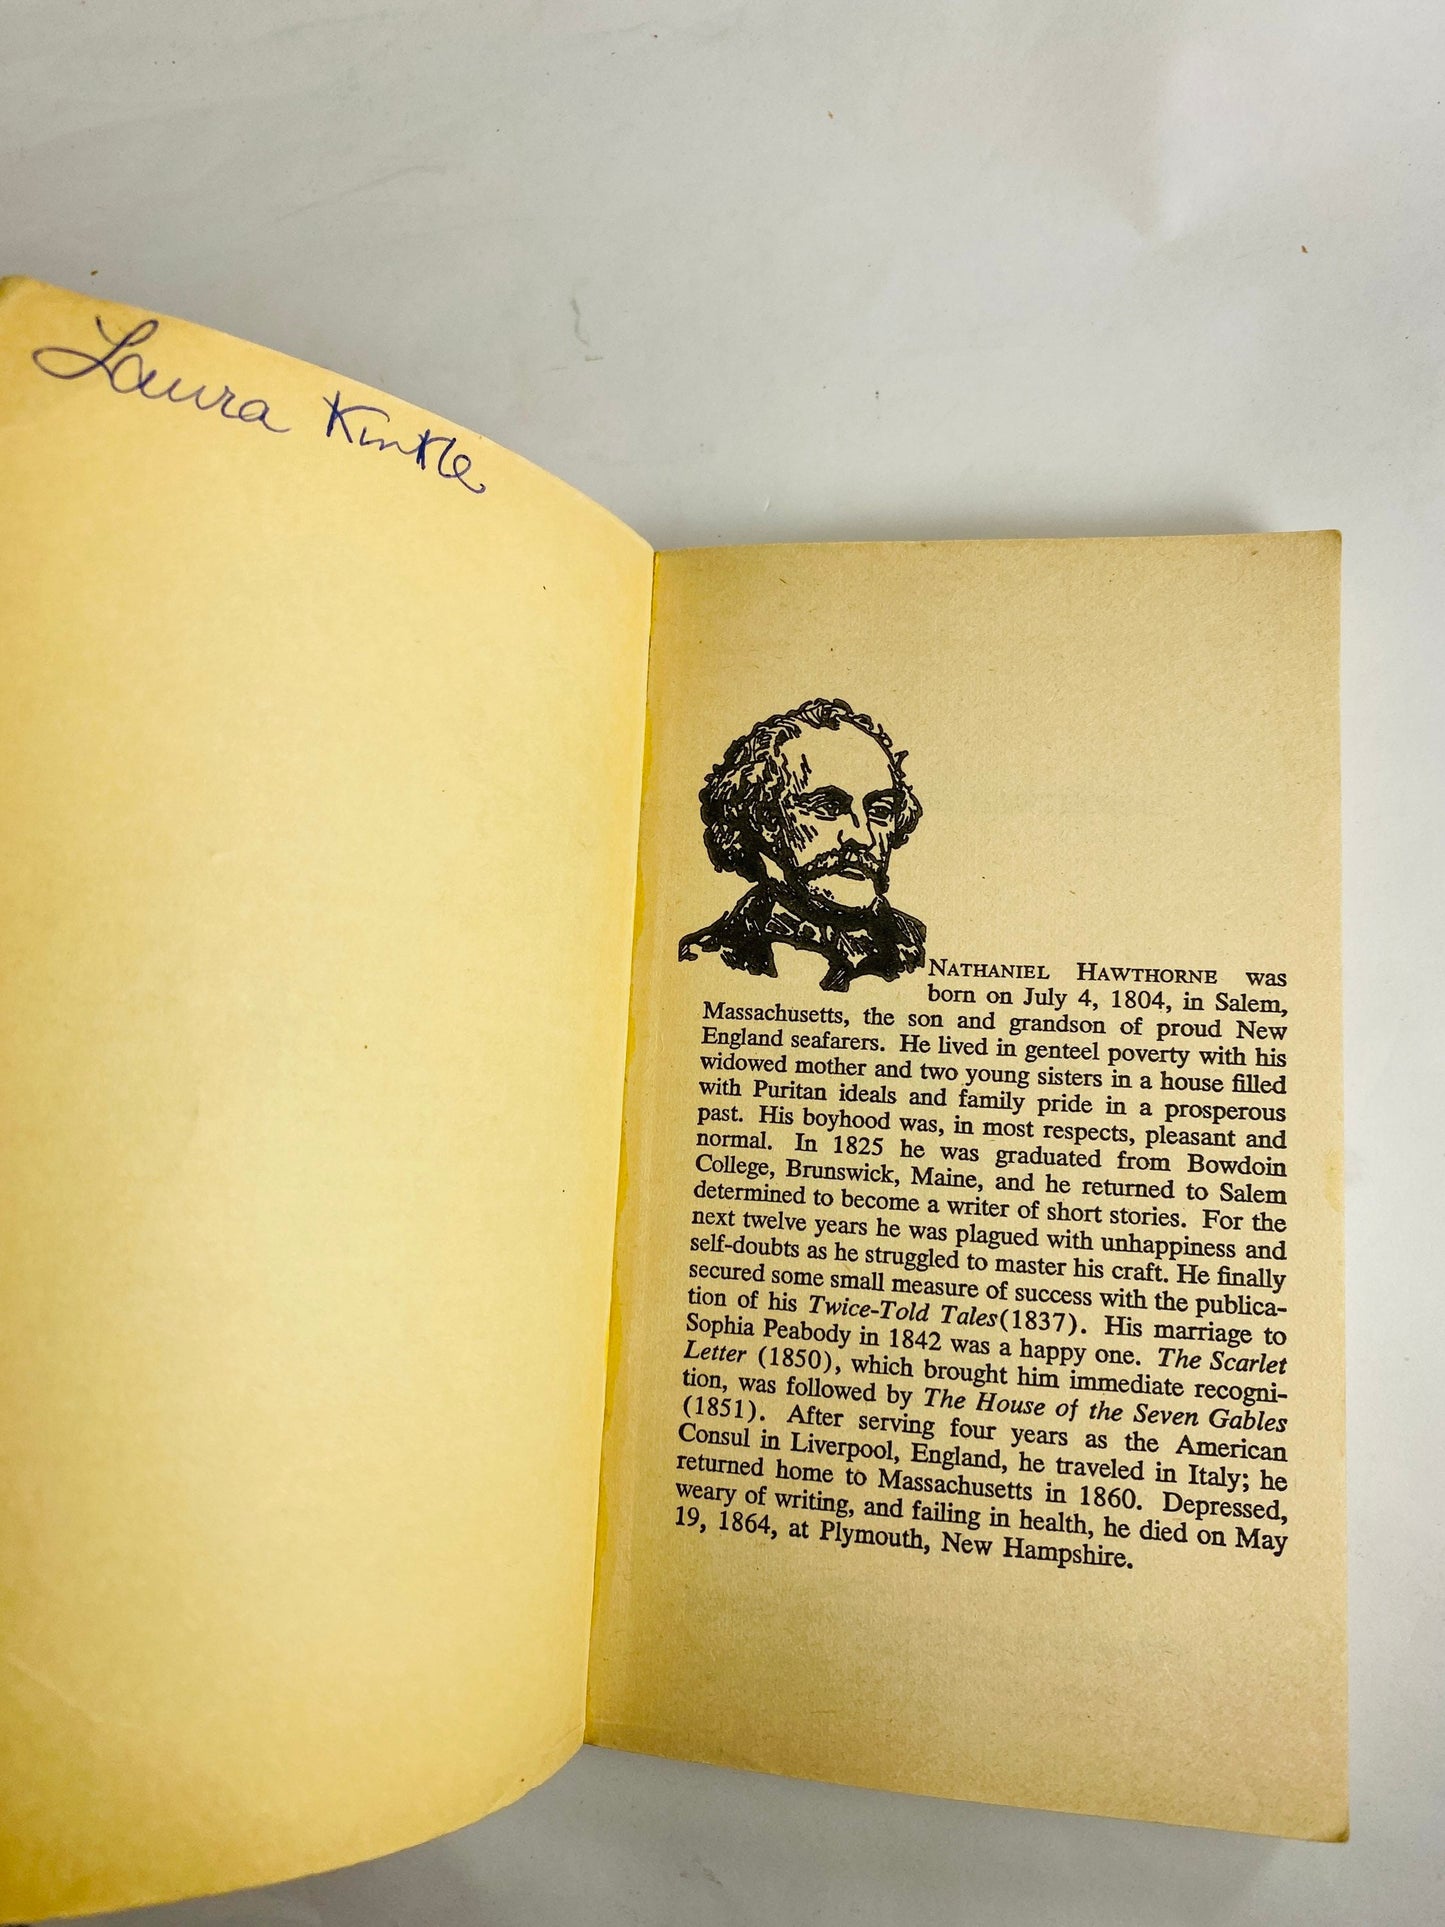 Laura Kinkle
NATHANIEL HAWTHORNE was
born on July 4, 1804, in Salem,
Massachusetts, the son and grandson of proud New
England seafarers. He lived in genteel poverty with his
widowed mother and two young sisters in a house filled
with Puritan ideals and family pride in a prosperous
past. His boyhood was, in most respects, pleasant and
normal. In 1825 he was graduated from Bowdoin
College, Brunswick, Maine, and he returned to Salem
determined to become a writer of short stories. For the
next twelve years he was plagued with unhappiness and
self-doubts as he struggled to master his craft. He finally
secured some small measure of success with the publica-
tion of his Twice-Told Tales(1837). His marriage to
Sophia Peabody in 1842 was a happy one. The Scarlet
Letter (1850), which brought him immediate recogni-
tion, was followed by The House of the Seven Gables
(1851). After serving four years as the American
Consul in Liverpool, England, he traveled in Italy; he
returned home to Massachusetts in 1860. Depressed,
weary of writing, and failing in health, he died on May
19, 1864, at Plymouth, New Hampshire.